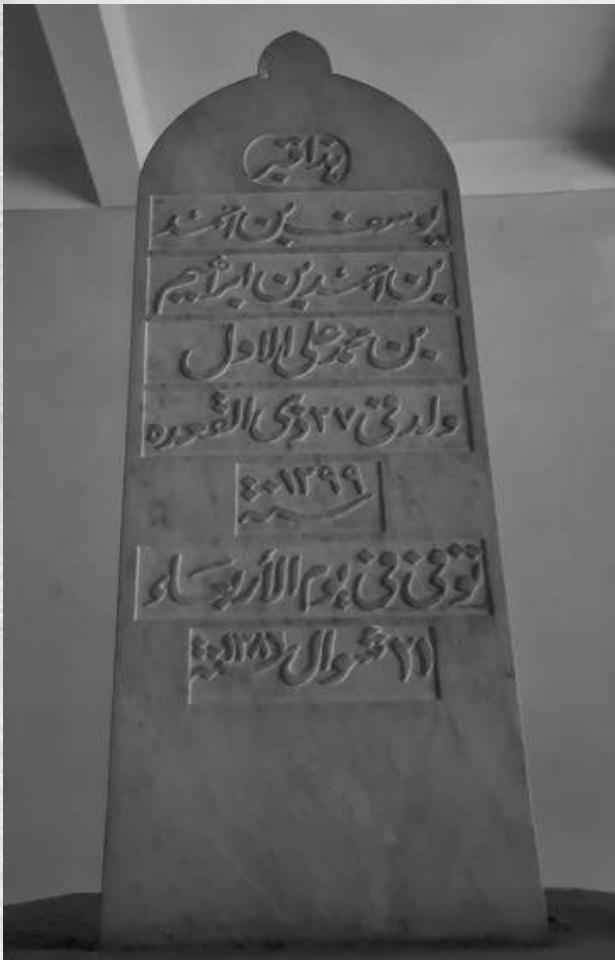 هذا قبر
يوسف بن احمد
بن احمد بن ابراهيم
بن محمد علي الاول
ولد في ٢٧ ذي القعده
سنة ١٢٩٩
توفى في يوم الأربعاء
٢١ شوال